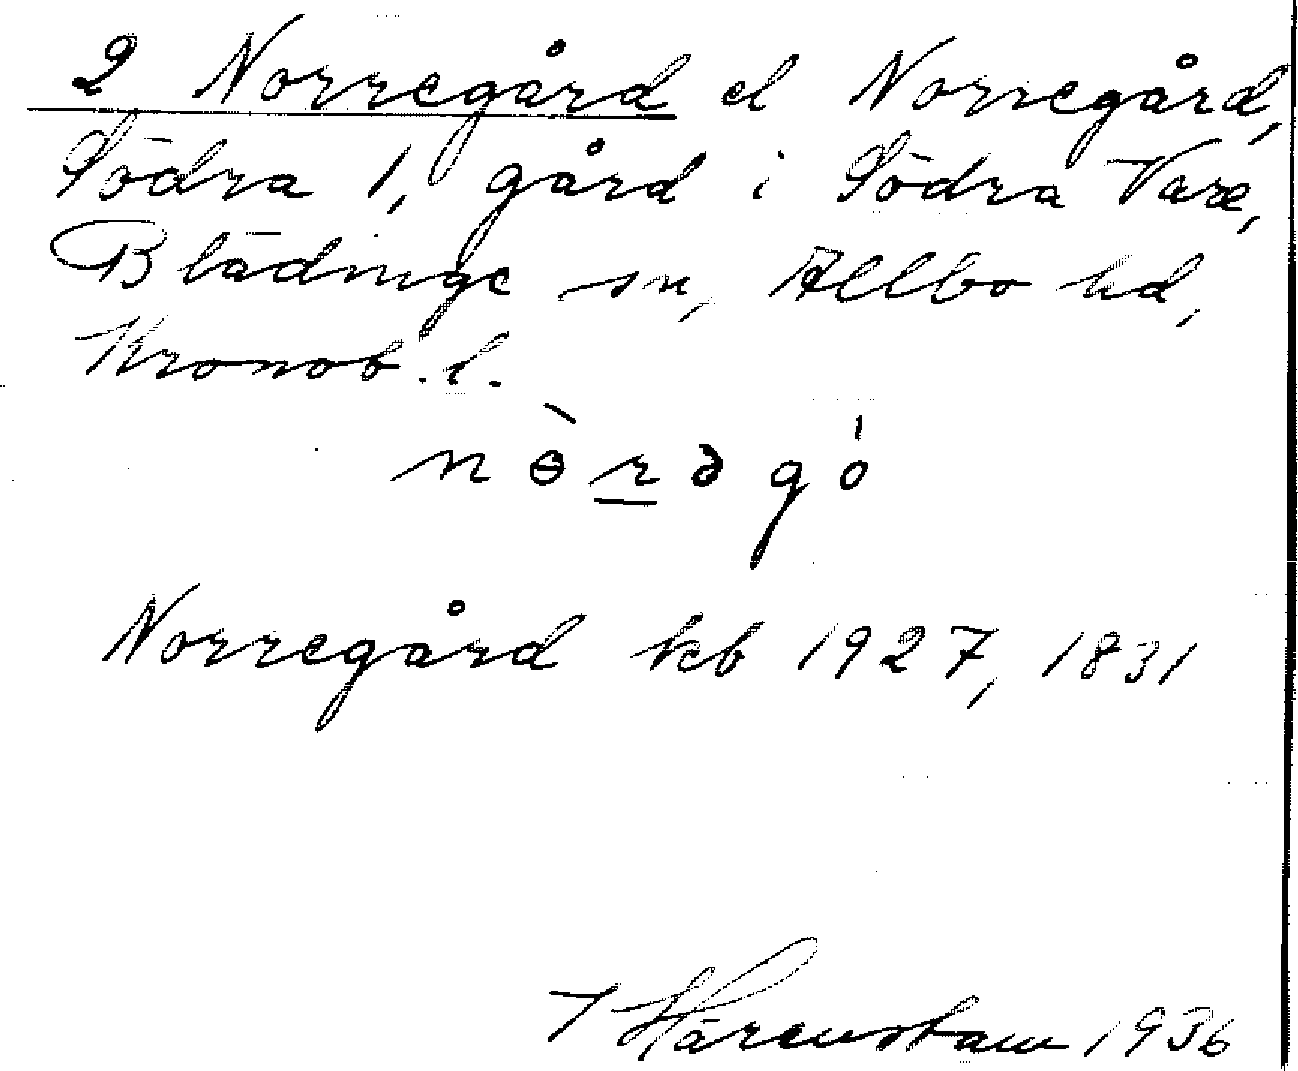 2 Norregård el Norregård,
Södra 1, gård i Södra Vare,
Blädinge sn, Allbo hd,
Kronob. l.
nɵ̀rəgó
Norregård kb 1927, 1831
T Härenstam 1936